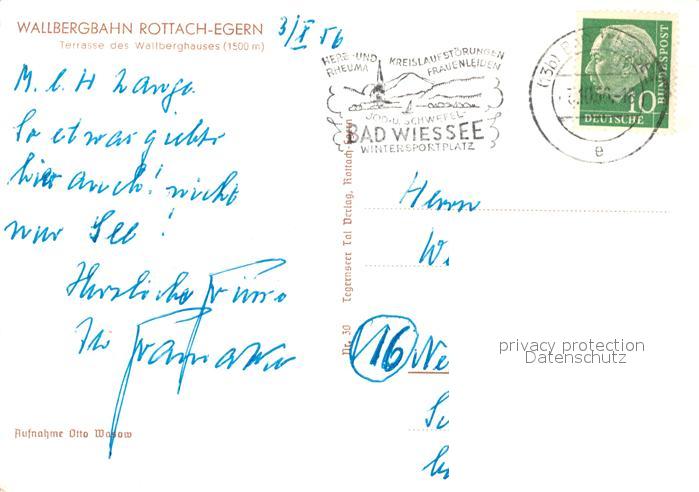 WALLBERGBAHN ROTTACH-EGERN
Terrasse des Wallberghauses (1500 m)
3/X 56
M. l. H
So etwas giebts
hier auch! nicht
nur See!
Herzliche Grüsse
Ihr
Aufnahme Otto Wasow
Nr. 30 Tegernseer Tal Verlag, Rottach-Egern
HERZ-UND KREISLAUFSTÖRUNGEN
RHEUMA FRAUENLEIDEN
JOD-U. SCHWEFEL-
BAD WIESSEE
WINTERSPORTPLATZ
(13b) BAD
e
10
DEUTSCHE BUNDESPOST
Herrn
W
16 Ne
privacy protection
Datenschutz